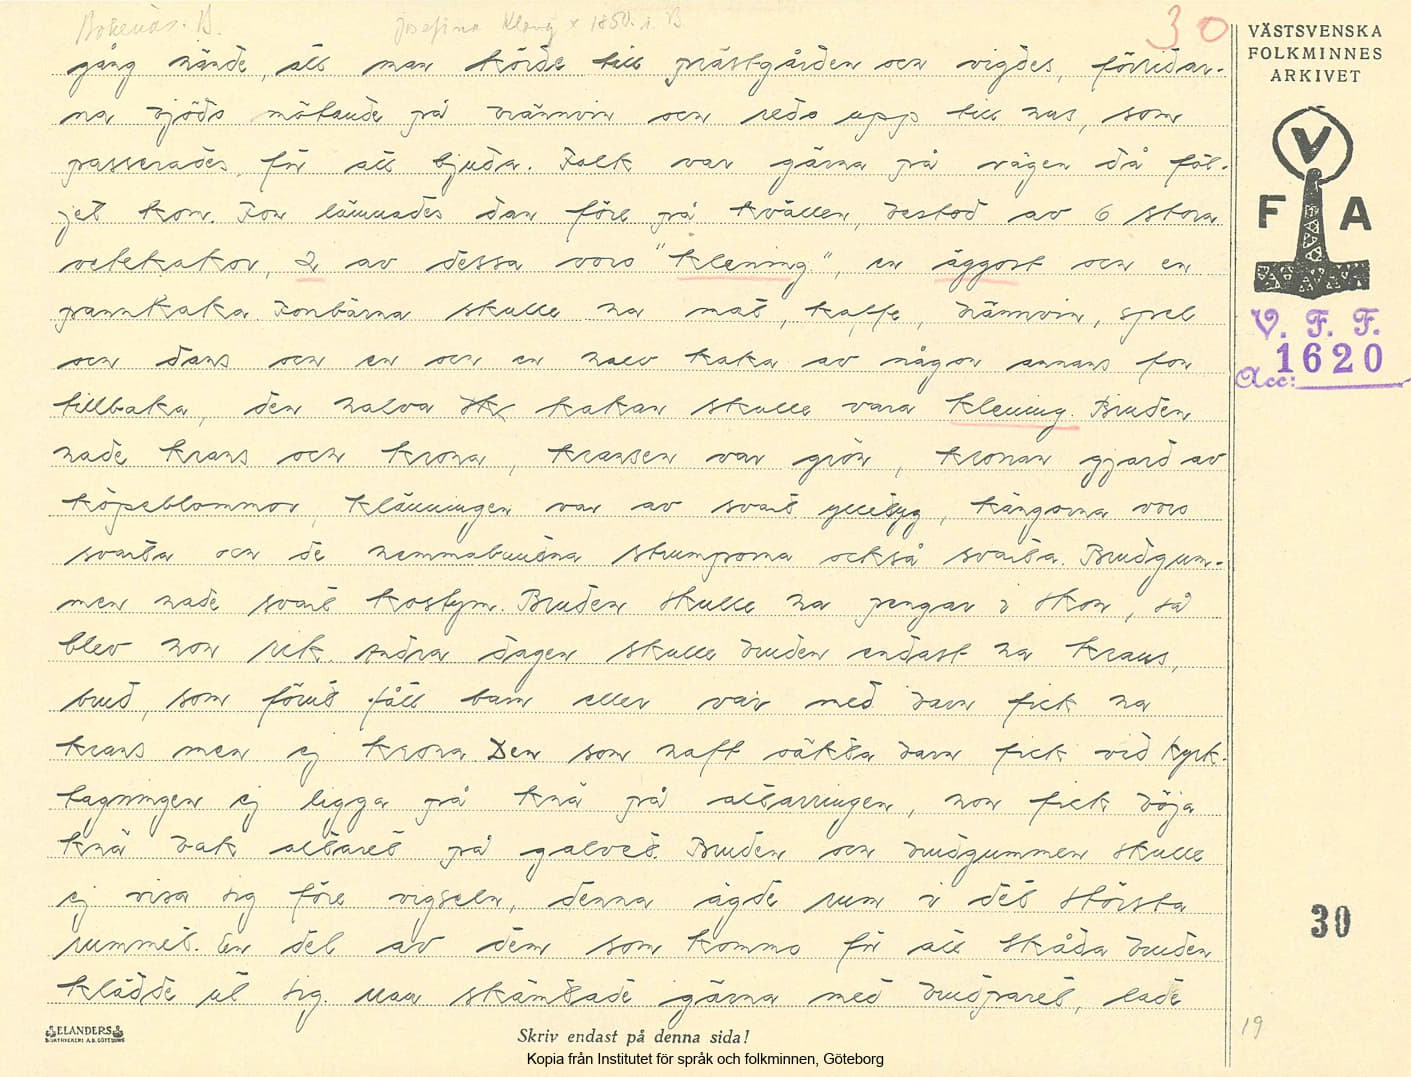 Bokenäs. B. Josefina Klang * 1850. i. B
30
VÄSTSVENSKA
FOLKMINNES
ARKIVET
V
F A
V. F. F.
Acc: 1620
gång hände, att man körde till prästgården och vigdes, förridar-
na bjöds mötande på brännvin och reds upp till hus, som
passerades, för att bjuda. Folk var gärna på vägen då föl-
jet kom. Forn lämnades dan före på kvällen, bestod av 6 stora
vetekakor, 2 av dessa voro "klening", en äggost och en
pannkaka. Fornbärna skulle ha mat, kaffe, brännvin, spel
och dans och en och en halv kaka av någon annans forn
tillbaka, den halva kakan skulle vara klening. Bruden
hade krans och krona, kransen var grön, kronan gjord av
köpeblommor, klänningen var av svart ylletyg, kängorna voro
svarta och de hemmabundna strumporna också svarta. Brudgum-
men hade svart kostym. Bruden skulle ha pengar i skon, så
blev hon rik. Andra dagen skulle bruden endast ha krans,
brud, som förut fått barn eller var med barn fick ha
krans men ej krona. Den som haft oäkta barn fick vid kyrk-
tagningen ej ligga på knä på altarringen, hon fick böja
knä bak altaret på golvet. Bruden och brudgummen skulle
ej visa sig före vigseln, denna ägde rum i det största
rummet. En del av dem som kommo för att skåda bruden
klädde ut sig. Man skämtade gärna med brudparet, lade
30
19
ELANDERS
BOKTRYCKERI A.B. GÖTEBORG
Skriv endast på denna sida!
Kopia från Institutet för språk och folkminnen, Göteborg